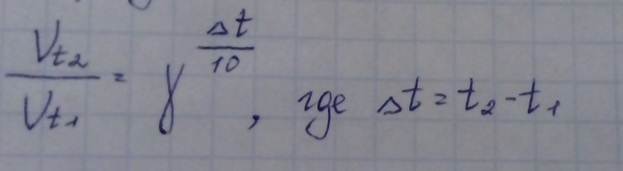 V_t2 / V_t1 = γ^(Δt/10), где Δt = t₂ - t₁